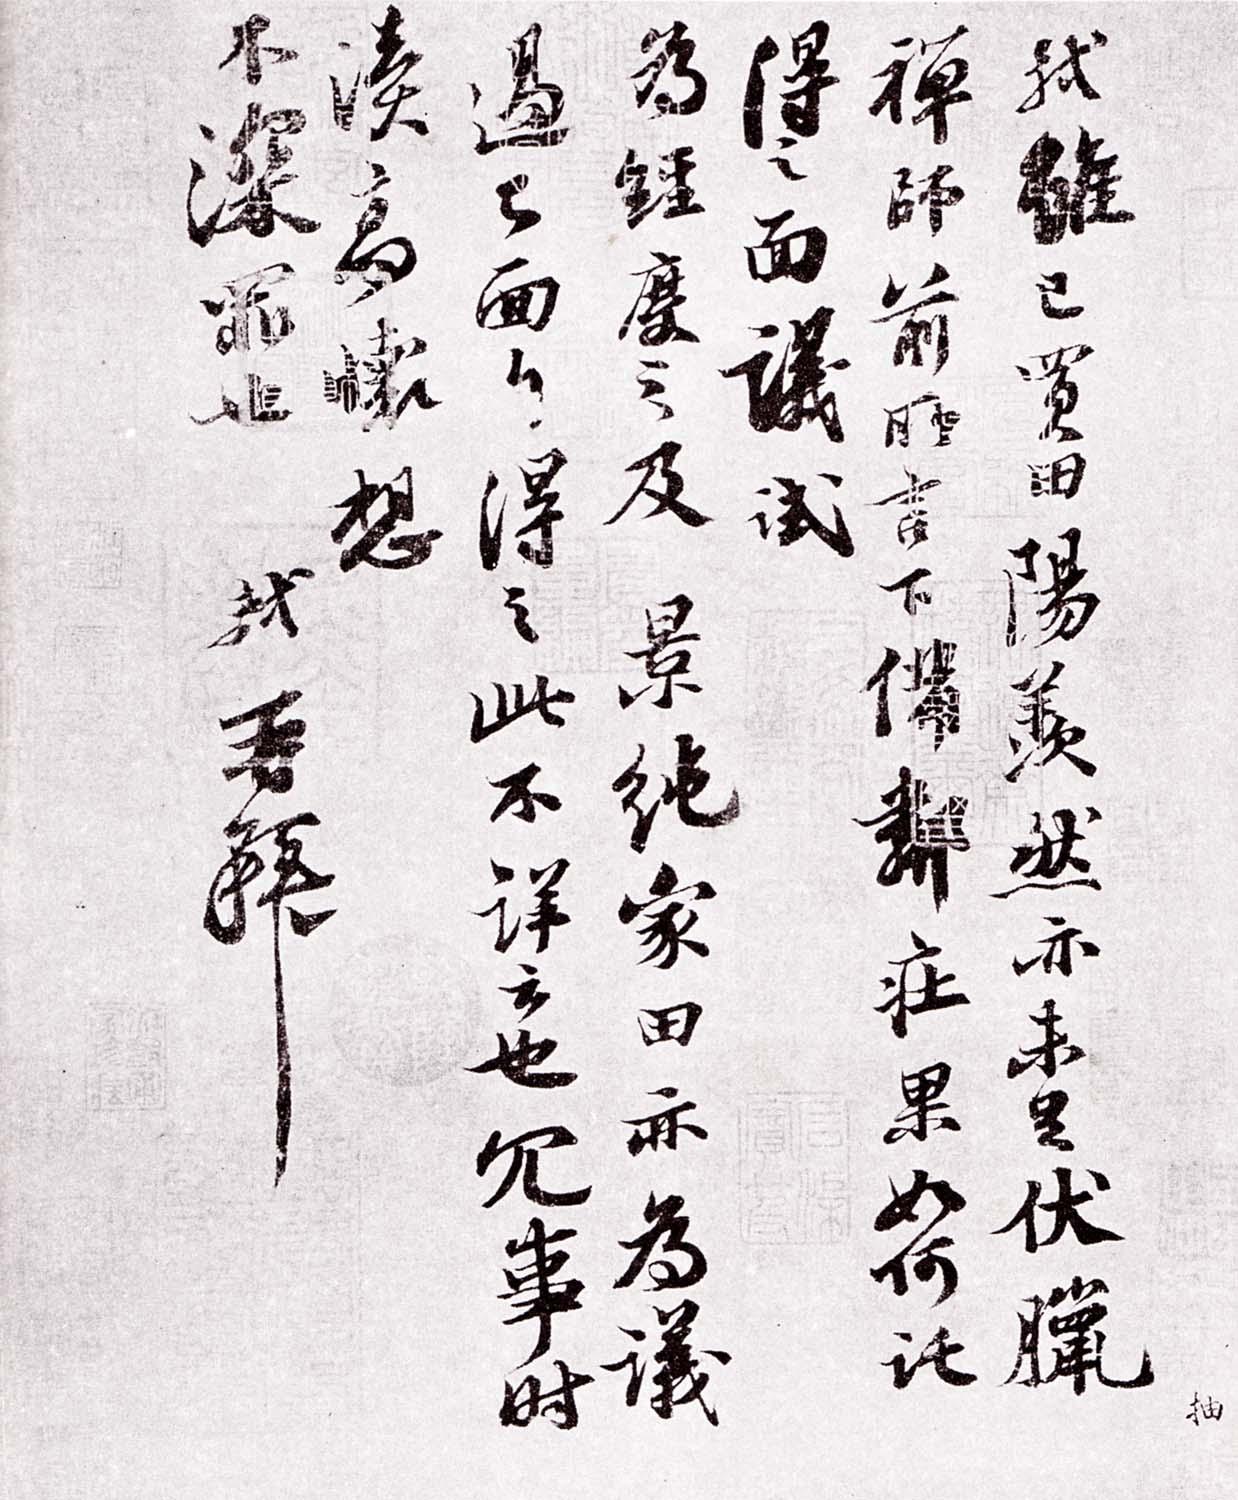 軾雖已買田陽羨然亦未足伏臘
禪師前所言下備鄰莊果如何託
得之面議試
為經度之及 景純家田亦為議
過已面白得之此不詳云也冗事时
瀆高懷想
不深罪也 軾再拜
抽